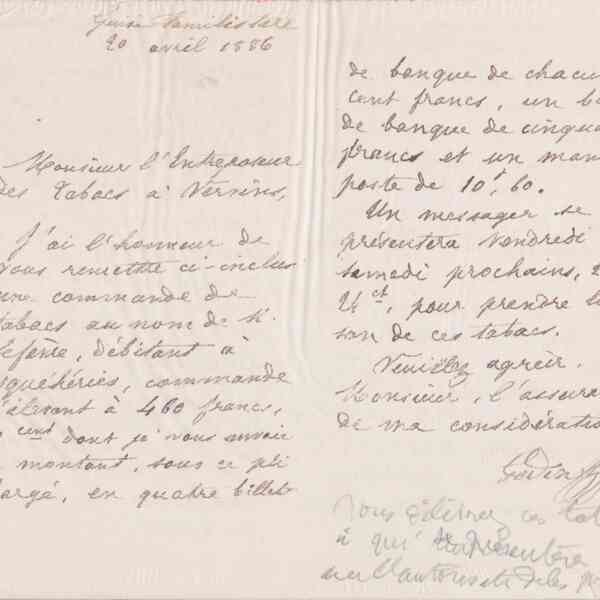 Guise Familistère
20 avril 1886
Monsieur l'Entreposeur
des tabacs à Vervins,
J'ai l'honneur de
vous remettre ci-inclus
une commande de
tabacs au nom de M.
Lefèvre, débitant à
squéhéries, commande
s'élevant à 460 francs,
cent dont je vous envoie
montant, sous ce pli
chargé, en quatre billets
de banque de chacun
cent francs, un b
de banque de cinqua
francs et un man
poste de 10f,60.
Un messager se
présentera vendredi
samedi prochains, 2
24 ct, pour prendre l
son de ces tabacs.
Veuillez agréer,
Monsieur, l'assura
de ma considératio
Godin
vous ces tab
à qui